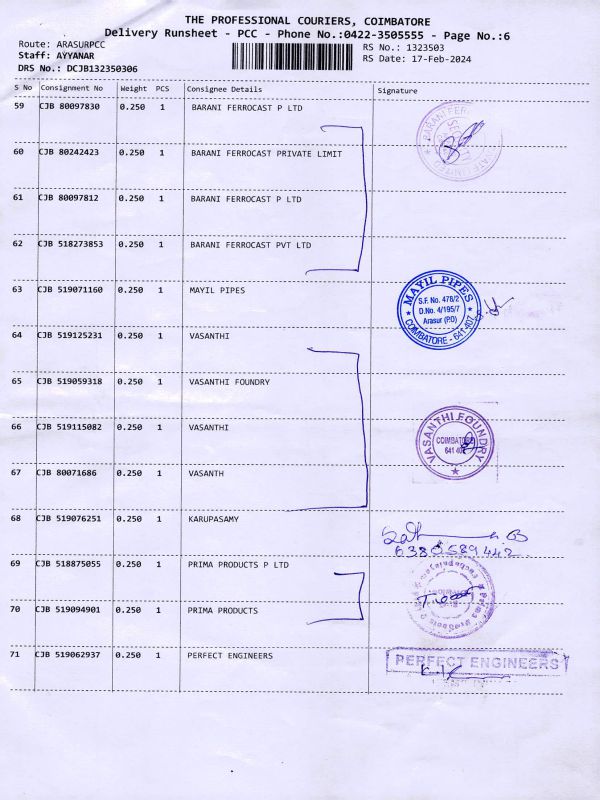 THE PROFESSIONAL COURIERS, COIMBATORE
Delivery Runsheet - PCC - Phone No.:0422-3505555 - Page No.:6
Route: ARASURPCC
Staff: AYYANAR
DRS No.: DCJB132350306
RS No.: 1323503
RS Date: 17-Feb-2024
S No Consignment No Weight PCS Consignee Details Signature
59 CJB 80097830 0.250 1 BARANI FERROCAST P LTD
60 CJB 80242423 0.250 1 BARANI FERROCAST PRIVATE LIMIT
61 CJB 80097812 0.250 1 BARANI FERROCAST P LTD
62 CJB 518273853 0.250 1 BARANI FERROCAST PVT LTD
63 CJB 519071160 0.250 1 MAYIL PIPES
MAYIL PIPES
S.F. No. 478/2
D.No. 4/195/7
Arasur (P.O)
COIMBATORE - 641 407
64 CJB 519125231 0.250 1 VASANTHI
65 CJB 519059318 0.250 1 VASANTHI FOUNDRY
66 CJB 519115082 0.250 1 VASANTHI
VASANTHI FOUNDRY
COIMBATORE
641 407
67 CJB 80071686 0.250 1 VASANTH
68 CJB 519076251 0.250 1 KARUPASAMY
6380589442
69 CJB 518875055 0.250 1 PRIMA PRODUCTS P LTD
70 CJB 519094901 0.250 1 PRIMA PRODUCTS
71 CJB 519062937 0.250 1 PERFECT ENGINEERS
PERFECT ENGINEERS